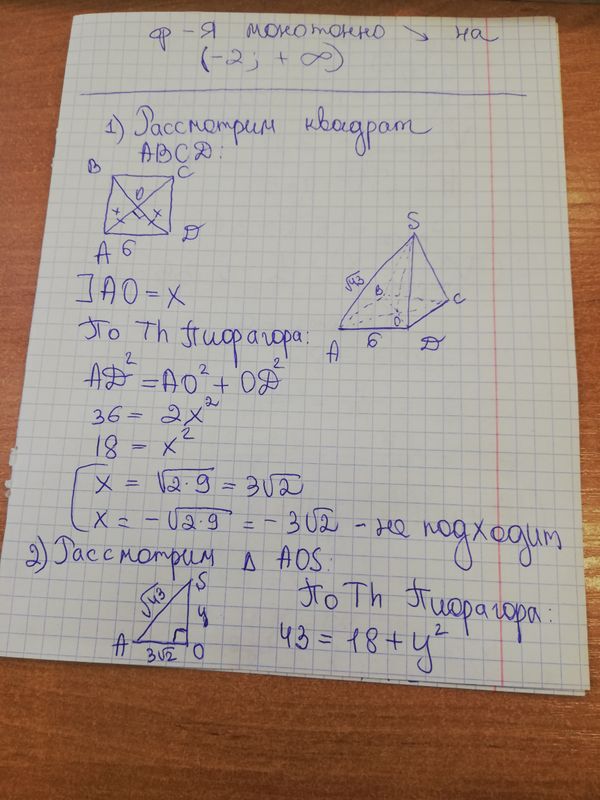 ф-я монотонно ↘ на
(-2; +∞)
1) Рассмотрим квадрат
ABCD:
B C
O
A 6 D
S
√43
B C
O
A 6 D
]AO = x
По Th Пифагора:
AD² = AO² + OD²
36 = 2x²
18 = x²
x = √2·9 = 3√2
x = -√2·9 = -3√2 - не подходит
2) Рассмотрим Δ AOS:
S
√43
y
A 3√2 O
По Th Пифагора:
43 = 18 + y²